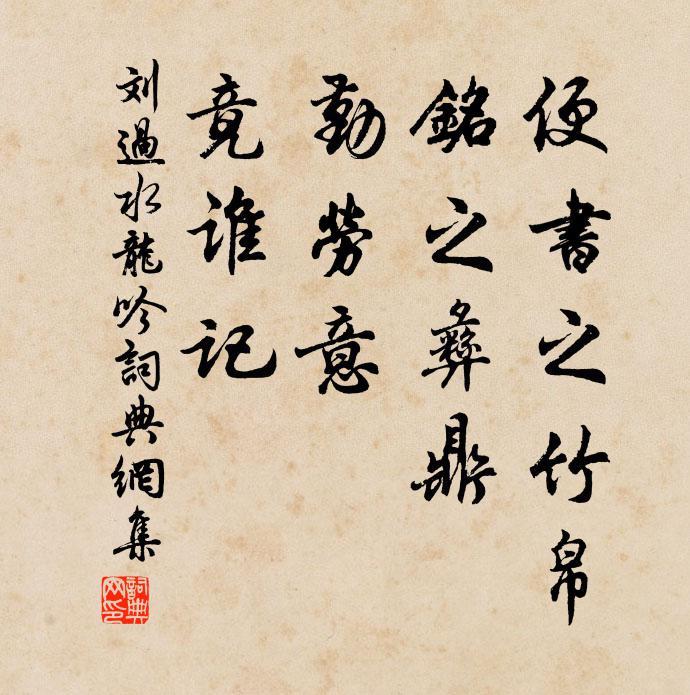 便書之竹帛
銘之彝鼎
勤勞意
竟誰記
刘過水龍吟詞典網集
詞典网印